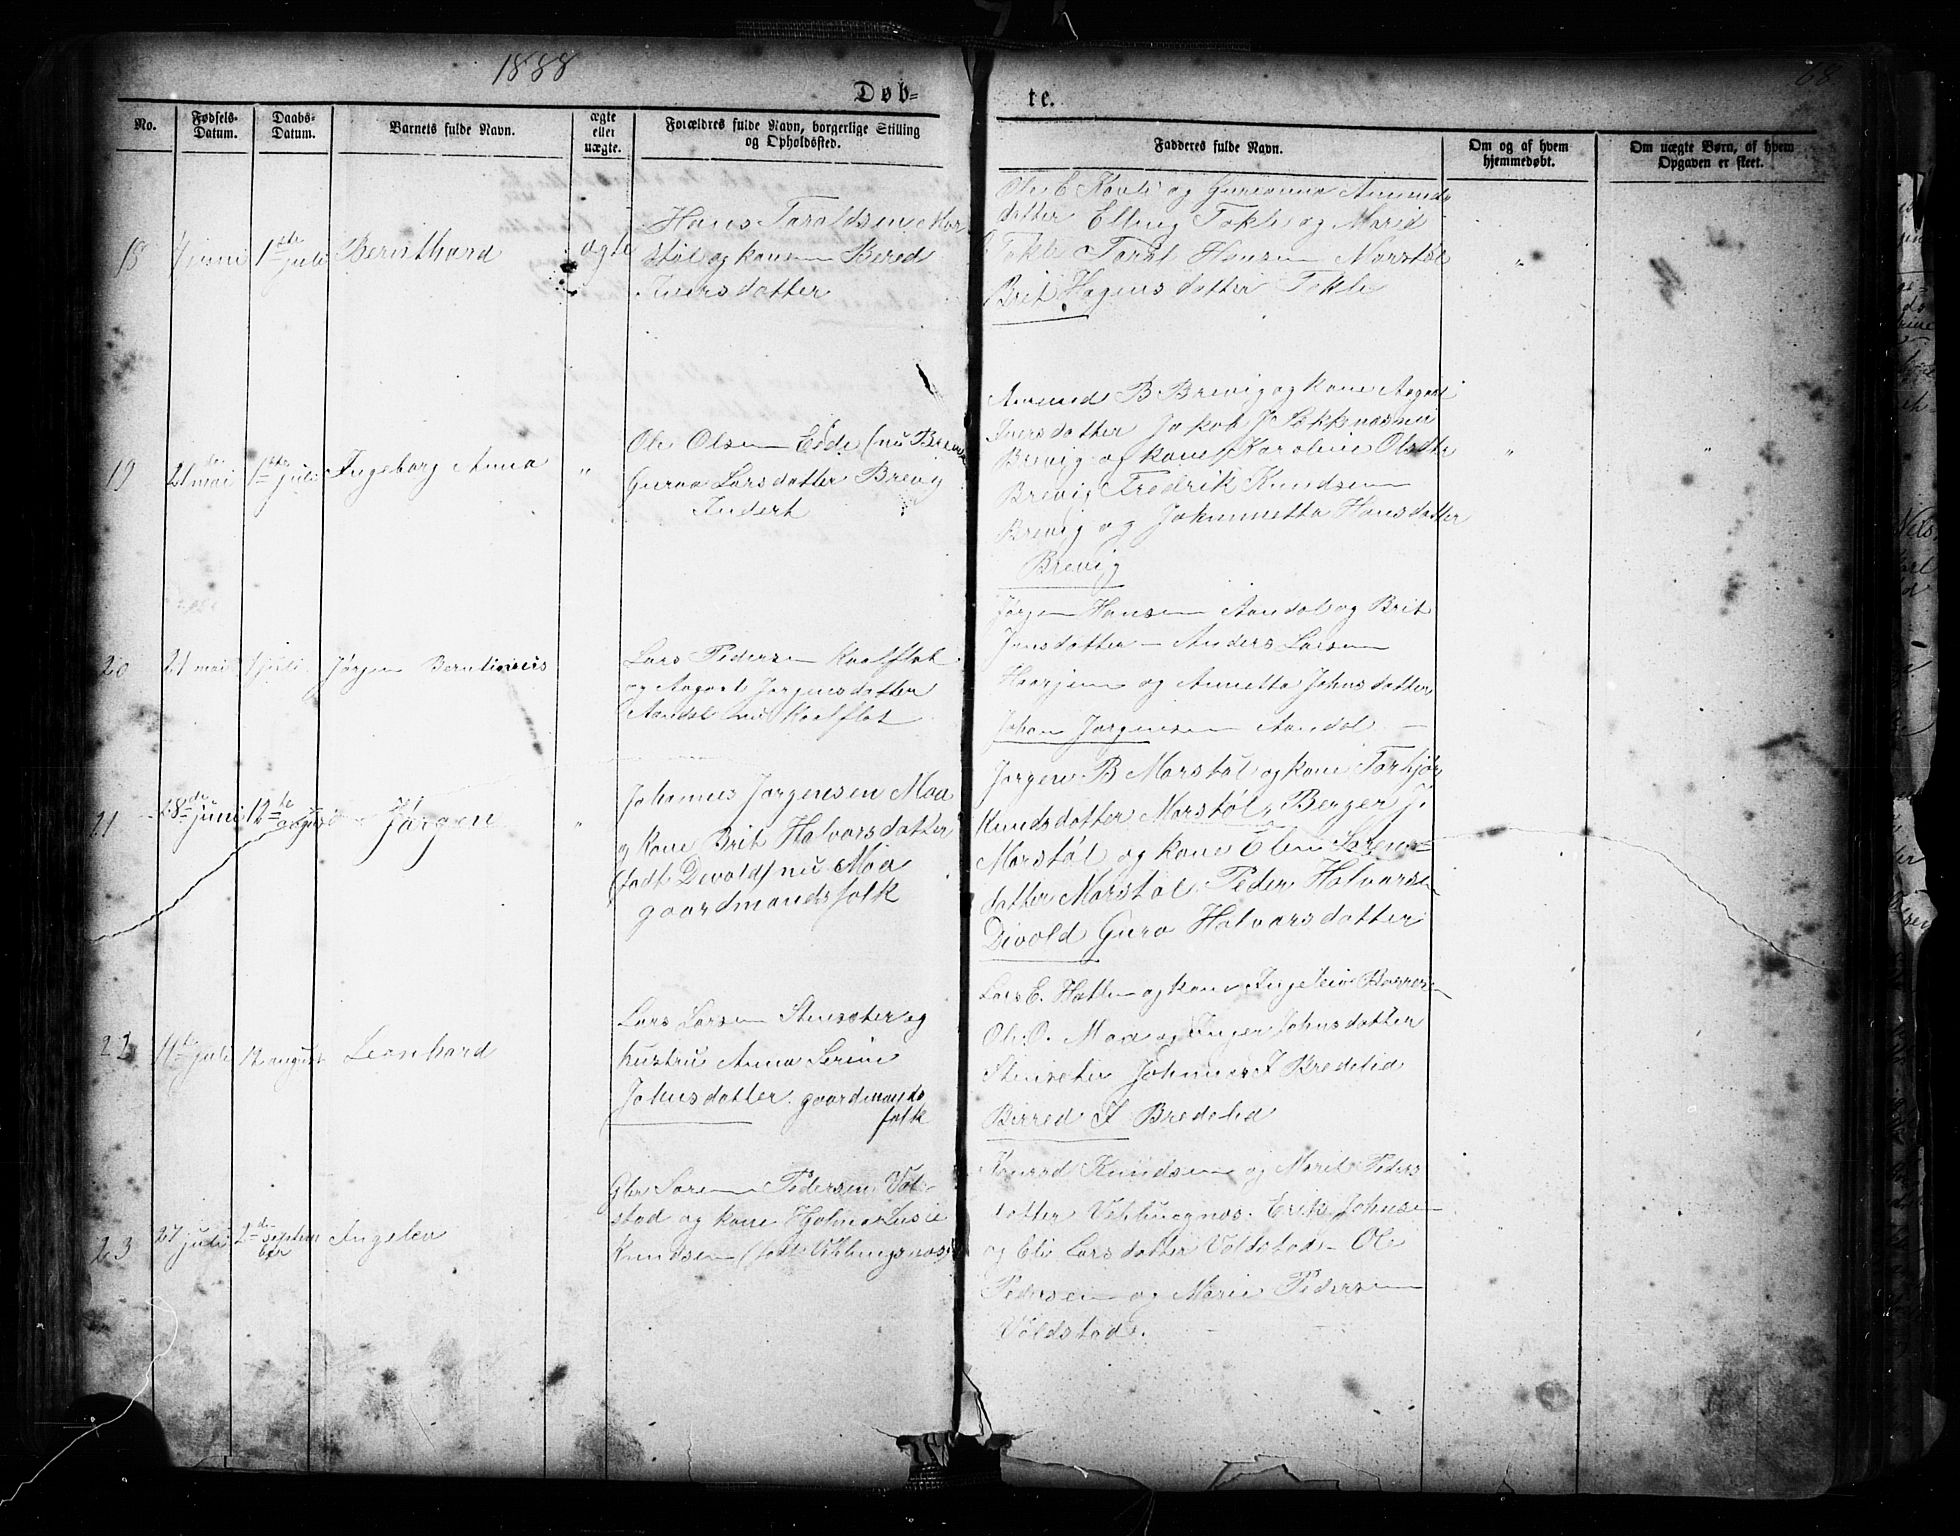 1888
68
Døb-
te.
No.
Fødsels-
Datum.
Daabs-
Datum.
Barnets fulde Navn.
ægte
eller
uægte.
Forældres fulde Navn, borgerlige Stilling
og Opholdssted.
Fadderes fulde Navn.
Om og af hvem
hjemmedøbt.
Om uægte Børn, af hvem
Opgaven er skeet.
18
juni
1ste juli
Bernthard
ægte
Hans Taraldsen Mar
støl og kone Bered
Iversdatter
Ole E og Gurianna Amunds
datter Elling Tokle og Marid
Tokle Taral Hansen Marstøl
Brit Hagensdatter Tokle
19
21de mai
1ste juli
Ingeborg Anna
"
Ole Olsen Eide (nu Brevig
Guraa Larsdatter Brevig
Inderst
Amund B Brevig og kone Aagaat
Iversdatter Jakob J
Brevig og kone Karoline Olsdtr
Brevig Fredrik Knudsen
Brevig og Johannetta Hansdatter
Brevig
20
21 mai
1 juli
Jørgen Berntinius
Lars Pedersen Kaalflot
og Aagaat Jørgensdatter
Aandal nu Kaalflot
Jørgen Hansen Aandal og Brit
Jensdatter - Anders Larsen
Haarjem og Annetta Johnsdatter
Johan Jørgensen Aandal -
21
28de juni
12te august
Jørgen
"
Johannes Jørgensen Moa
og kone Brit Halvorsdatter
(født Divold) nu Moa
gaardmandsfolk
Jørgen B Marstøl og kone Torbjør
Knudsdatter Marstøl, Berger J.
Marstøl og kone Elen Søren-
datter Marstøl Peder Halvorsen
Divold Guro Halvorsdatter
22
11te juli
12 august
Leonhard
Lars Larsen Stensæter og
hustru Anna Serine
Johnsdatter. gaardmands
folk
Lars E. Hatlen og kone Ingeleiv
Ole O. Moa og Inger Johnsdatter
Stensæter Johannes I Bredelid
Birred I Bredelid
23
27 juli
2den septem
ber
Angelea
Gbr Søren Pedersen Vol-
stad og kone Hjalma Lusie
Knudsen (født Vikhungsnæs)
Konrad Knudsen og Marit Peders
datter Vikhungnæs. Erik Johnsen
og Eli Larsdatter Voldstad - Ole
Pedersen og Marie Pedersen
Voldstad.